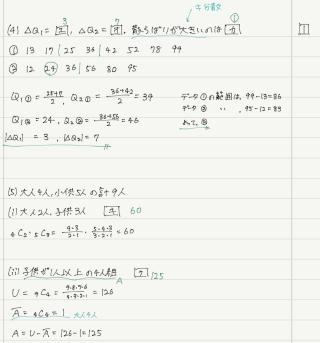 (4) △Q₁ = エ, △Q₂ = オ, 散らばりが大きいのは カ
3
7
①
① 13 17 | 25 36 | 42 52 78 99
② 12 24 36 | 56 80 95
Q₁① = , Q₂① = 36+42/2 = 39
Q₁② = 24, Q₂② = 36+56/2 = 46
|△Q₁| = 3, |△Q₂| = 7
データ①の範囲は, 99-13=86
データ② 〃 , 95-12=83
よって, ①
(5) 大人4人, 小供5人の計9人
(i) 大人2人, 子供3人 キ 60
₄C₂・₅C₃ = 4・3/2・1 ・ 5・4・3/3・2・1 = 60
(ii) 子供が1人以上の4人組 ク 125
A
U = ₉C₄ = 9・8・7・6/4・3・2・1 = 126
A̅ = ₄C₄ = 1 大人4人
A = U - A̅ = 126-1 = 125